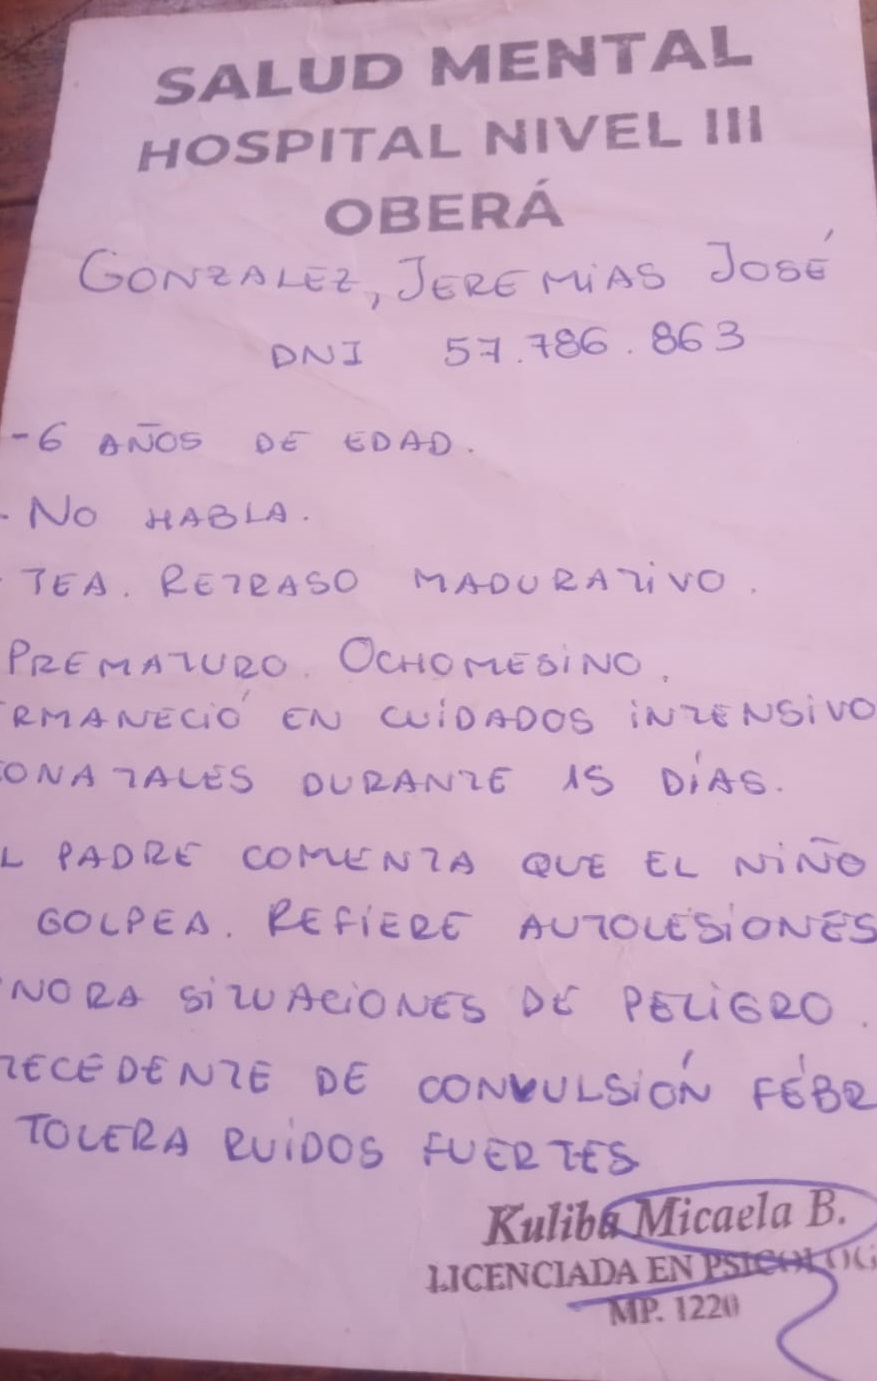 SALUD MENTAL
HOSPITAL NIVEL III
OBERÁ
GONZALEZ, JEREMIAS JOSÉ
DNI 57.786.863
-6 AÑOS DE EDAD.
- NO HABLA.
- TEA. RETRASO MADURATIVO.
PREMATURO. OCHOMESINO.
RMANECIÓ EN CUIDADOS INTENSIVO
ONATALES DURANTE 15 DÍAS.
L PADRE COMENTA QUE EL NIÑO
GOLPEA. REFIERE AUTOLESIONES
NORA SITUACIONES DE PELIGRO.
TECEDENTE DE CONVULSIÓN FÉBR
TOLERA RUIDOS FUERTES
Kuliba Micaela B.
LICENCIADA EN PSICOLOG
MP. 1220